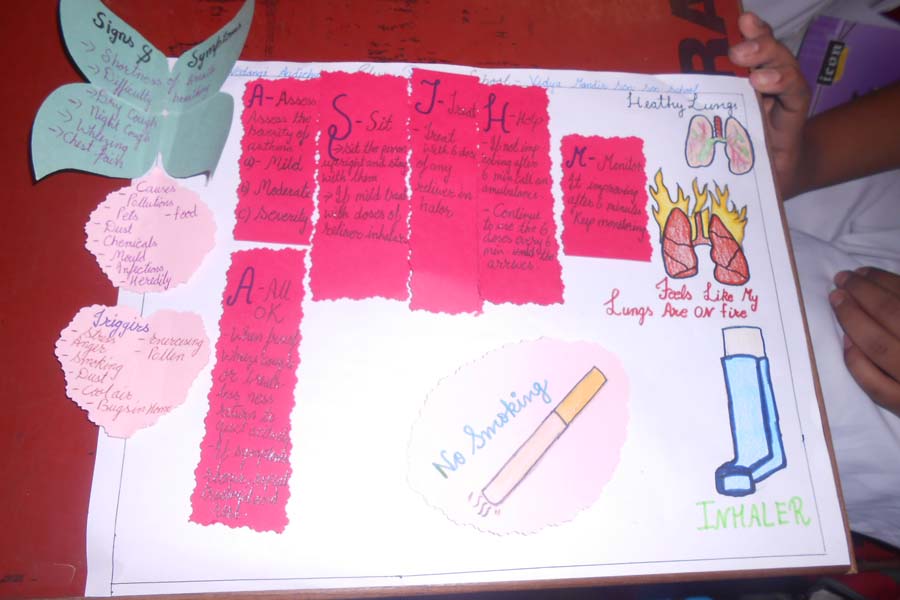 Signs &
Symptoms
-> Shortness of breath
-> Difficulty
-> Dry Cough
-> Night Cough
-> Whizing
-> Chest Pain
- Causes
- Pollutions
- Pets
- food
- Dust
- Chemicals
- Mould
- Infections
- Heredity
Triggirs
- Stress
- Exercising
- Anger
- Pollen
- Smoking
- Dust
- Cool air
- Bugs in Home
School - Vidya Mandir Sen Sen School
A - Assess
Assess the
of
asthma
a) - Mild
b) Moderate
c) Severity
S - Sit
-> Sit the person
upright and stay
with them
-> If mild treat
with doses of
reliver inhaler
T - Treat
- Treat
with 6 doses
of any
reliver in
halor
H - Help
- If not imp
roving after
6 min call an
ambulance.
- Continue
to use the 6
doses every 6
min until the
arrives.
M - Monitor
If improving
after 6 minutes
Keep monitoring
A - All
OK
When
cough
or breath
less ness
return to
If symptoms
repeat
Heathy Lungs
Feels Like My
Lungs Are ON Fire
No Smoking
INHALER
icon
RA